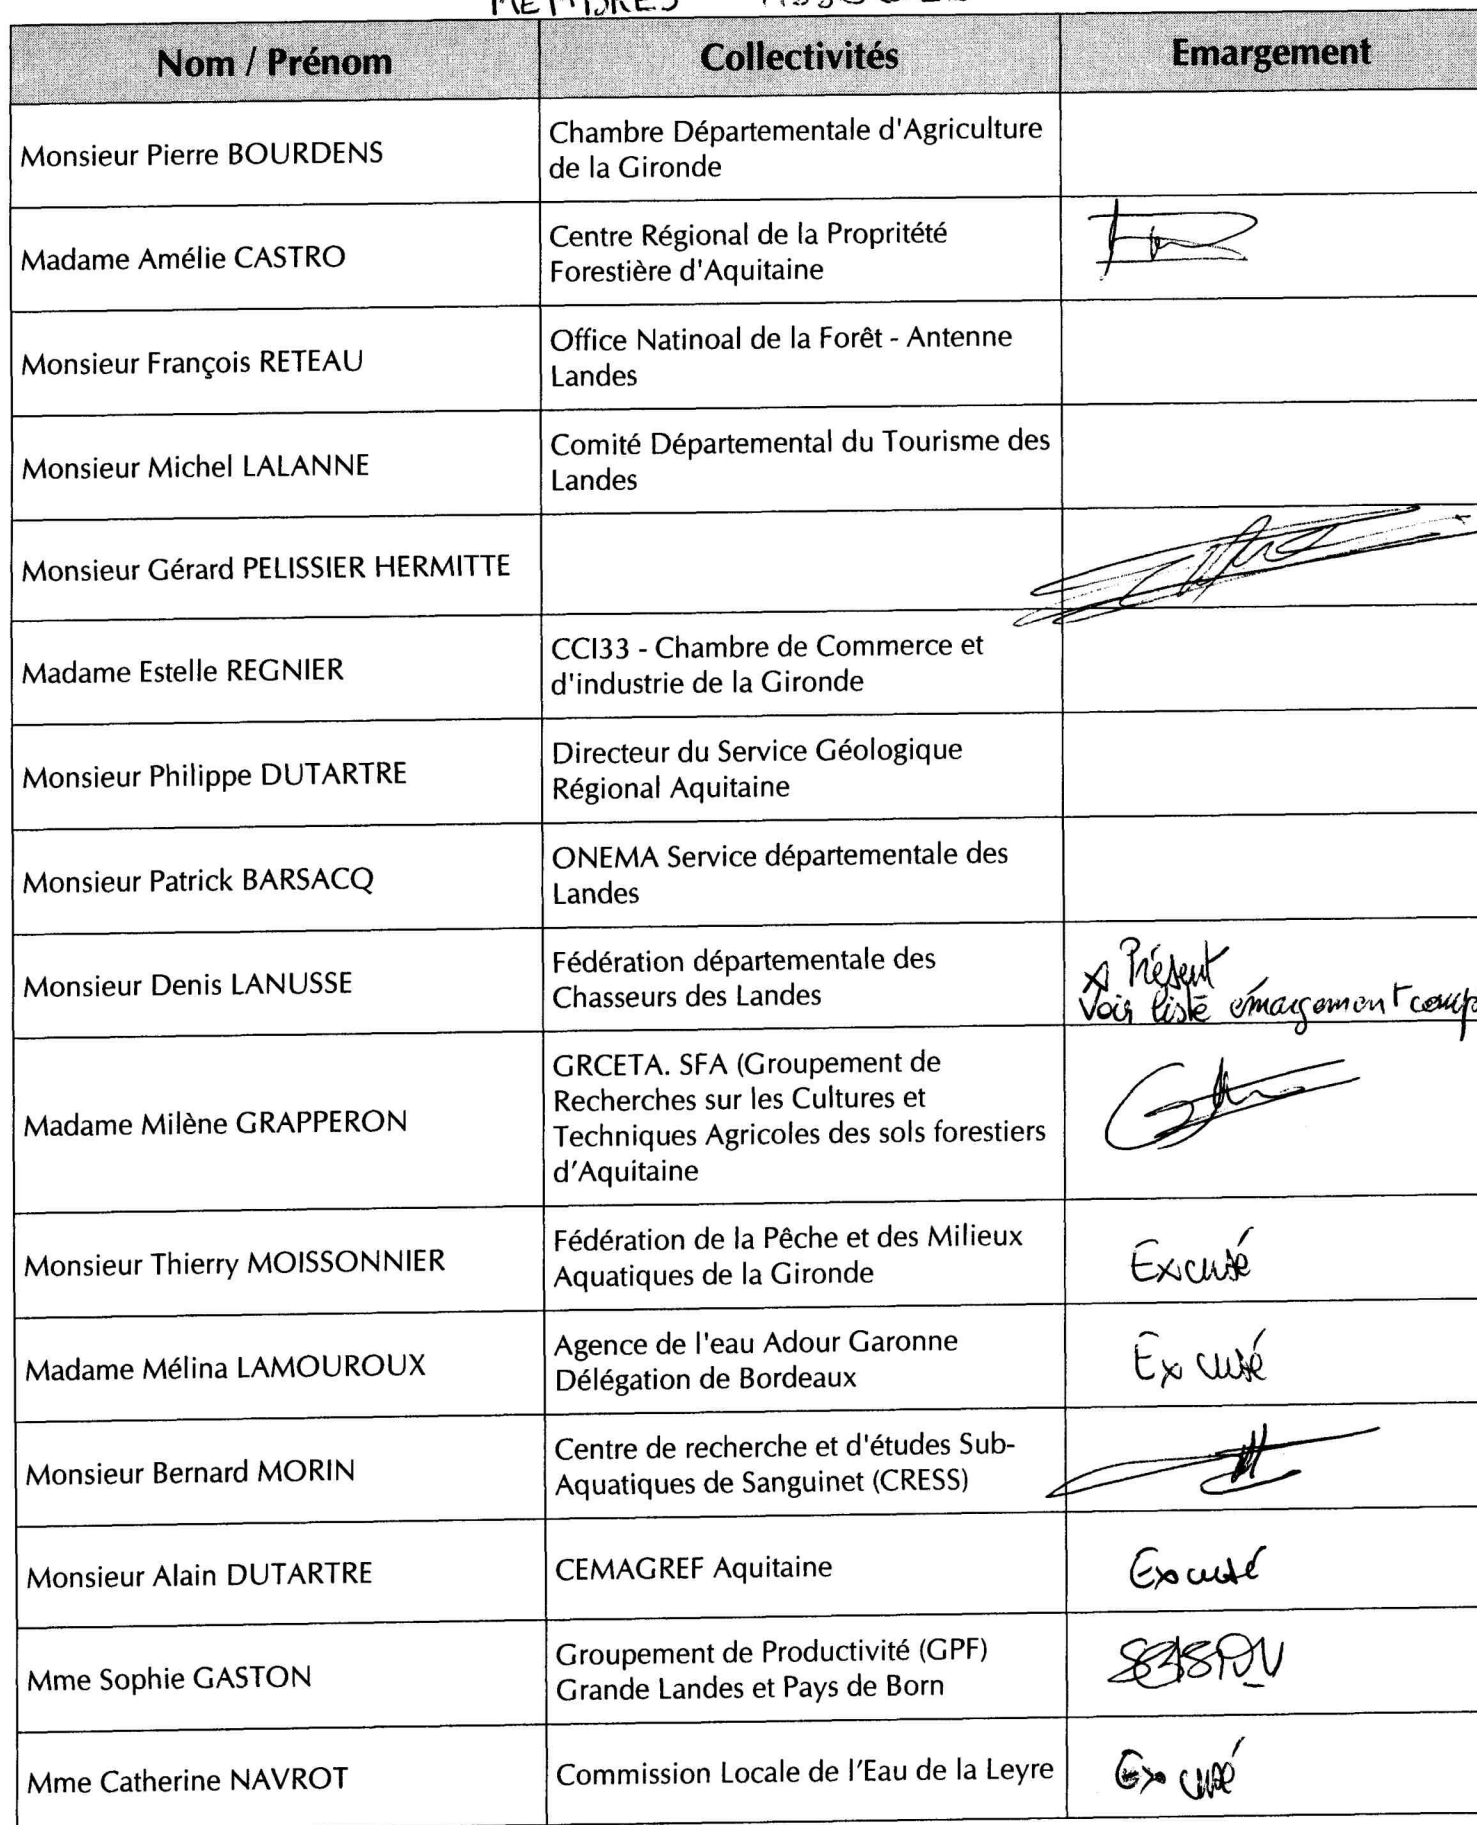 MEMBRES
Nom / Prénom Collectivités Emargement
Monsieur Pierre BOURDENS
Chambre Départementale d'Agriculture
de la Gironde
Madame Amélie CASTRO
Centre Régional de la Propritété
Forestière d'Aquitaine
Monsieur François RETEAU
Office Natinoal de la Forêt - Antenne
Landes
Monsieur Michel LALANNE
Comité Départemental du Tourisme des
Landes
Monsieur Gérard PELISSIER HERMITTE
Madame Estelle REGNIER
CCI33 - Chambre de Commerce et
d'industrie de la Gironde
Monsieur Philippe DUTARTRE
Directeur du Service Géologique
Régional Aquitaine
Monsieur Patrick BARSACQ
ONEMA Service départementale des
Landes
Monsieur Denis LANUSSE
Fédération départementale des
Chasseurs des Landes
Présent
Voir liste émargement
Madame Milène GRAPPERON
GRCETA. SFA (Groupement de
Recherches sur les Cultures et
Techniques Agricoles des sols forestiers
d'Aquitaine
Monsieur Thierry MOISSONNIER
Fédération de la Pêche et des Milieux
Aquatiques de la Gironde
Excusé
Madame Mélina LAMOUROUX
Agence de l'eau Adour Garonne
Délégation de Bordeaux
Excusé
Monsieur Bernard MORIN
Centre de recherche et d'études Sub-
Aquatiques de Sanguinet (CRESS)
Monsieur Alain DUTARTRE
CEMAGREF Aquitaine
Excusé
Mme Sophie GASTON
Groupement de Productivité (GPF)
Grande Landes et Pays de Born
Mme Catherine NAVROT
Commission Locale de l'Eau de la Leyre
Excusé